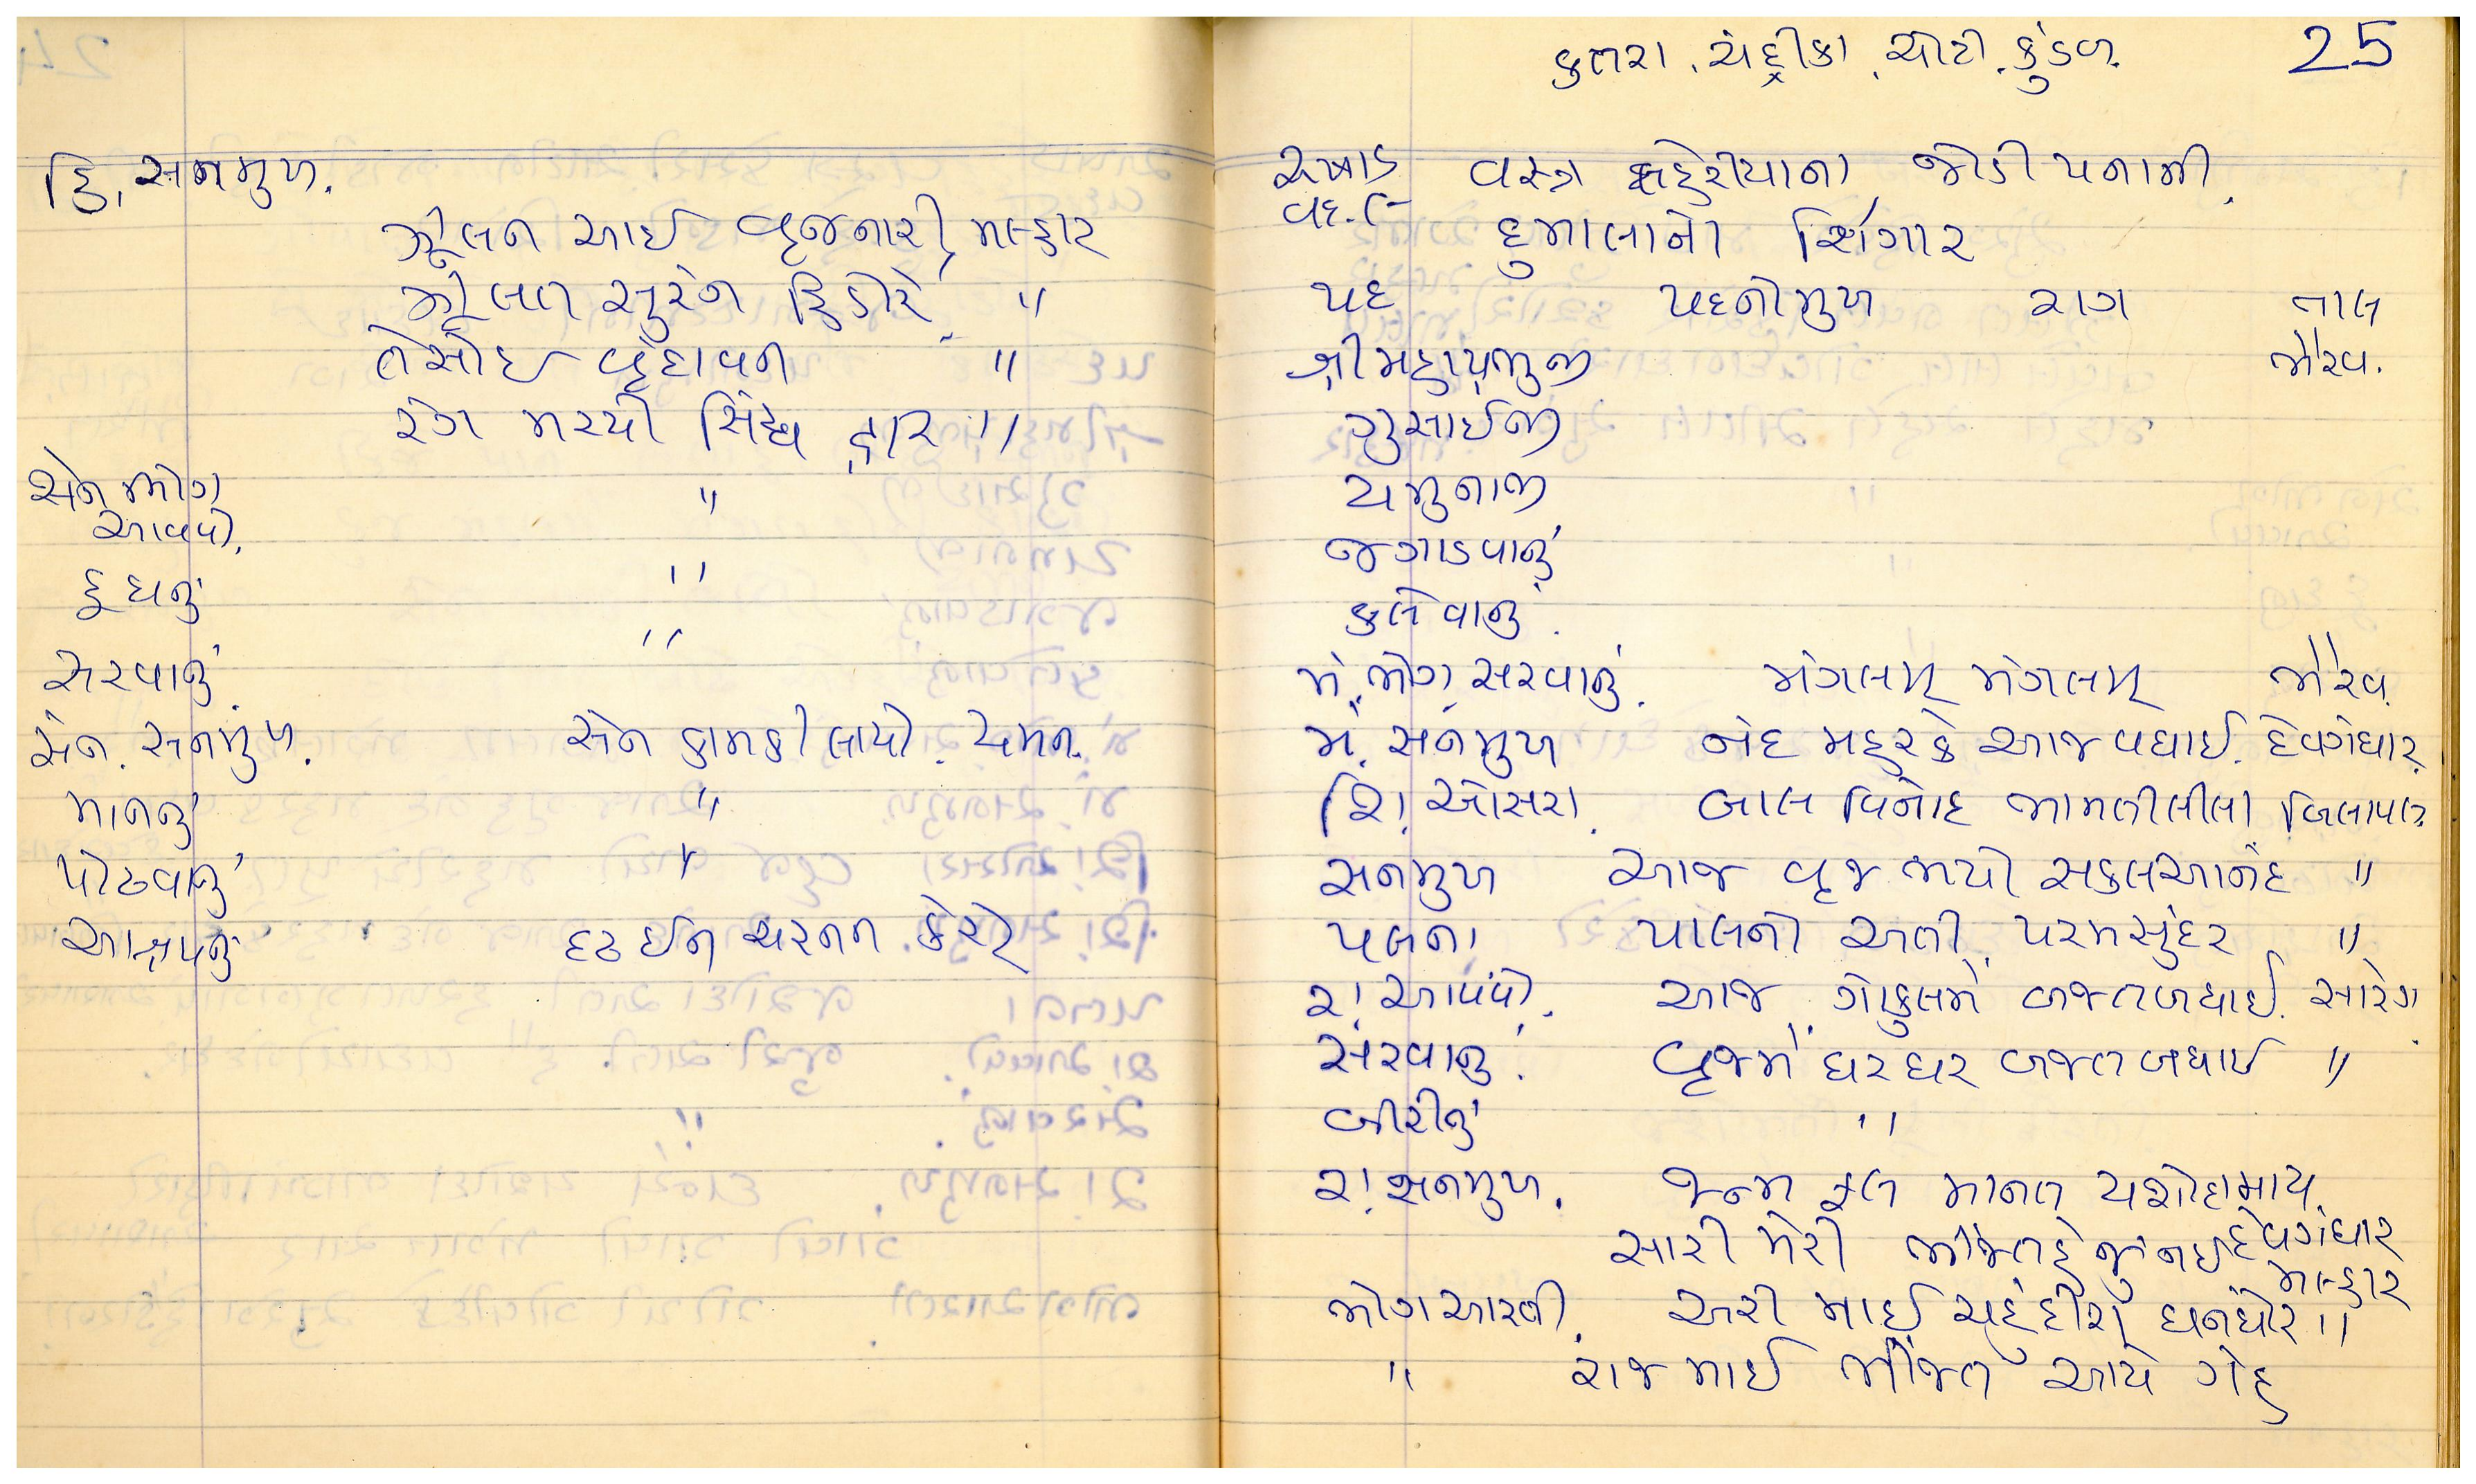 હિં, સનમુખ.
ઝૂલન આઈ વૃજનારી, મલ્હાર
ઝૂલત સુરંગ હિંડોરે, "
તેસોઈ વૃંદાવન "
રંગ મચ્યો સિંઘ દ્વાર "
સેન ભોગ "
આવવો.
દૂધનું "
સરવાનું "
સેન. સનમુખ. સેન કામકી લાયો. યમન.
માનનું "
પોઢવાનું "
આશ્રયનું દઢ ઈન ચરનન કેરો
કતરા, ચંદ્રીકા, ચોટી. કુંડળ. 25
અષાડ વસ્ત્ર લહેરીયાના, જોડી પનાની,
વદ.
દુમાલાનો શિંગાર
પદ પદનીમુખ રાગ તાલ
શ્રીમહાપ્રભુજી ભૈરવ.
ગુસાઈજી
યમુનાજી
જગાડવાનું
કલેવાનું.
મં. ભોગ સરવાનું. મંગલમ્ મંગલમ્ ભૈરવ
મં. સનમુખ નંદ મહરકે આજ વધાઈ. દેવગંધાર.
શિ! ઓસરા. બાલ વિનોદ ભામતીલીલા બિલાવલ
સનમુખ આજ વૃજ ભયો સકલઆનંદ "
પલના પાલનો અતી પરમસુંદર "
રા! આવવો. આજ ગોકુલમેં બજતબધાઈ. સારંગ
સરવાનું. વૃજમેં ઘર ઘર બજત બધાઈ "
બીરીનું "
રા! સનમુખ. જન્મ ફલ માનત યશોદામાય
દેવગંધાર
સારી મેરી ભીંજતહે જુ નઈ મલ્હાર
ભોગઆરતી. અરી માઈ ચહુંદીશ ઘનઘોર "
" રાજ માઈ ભીંજત આયે ગેહ